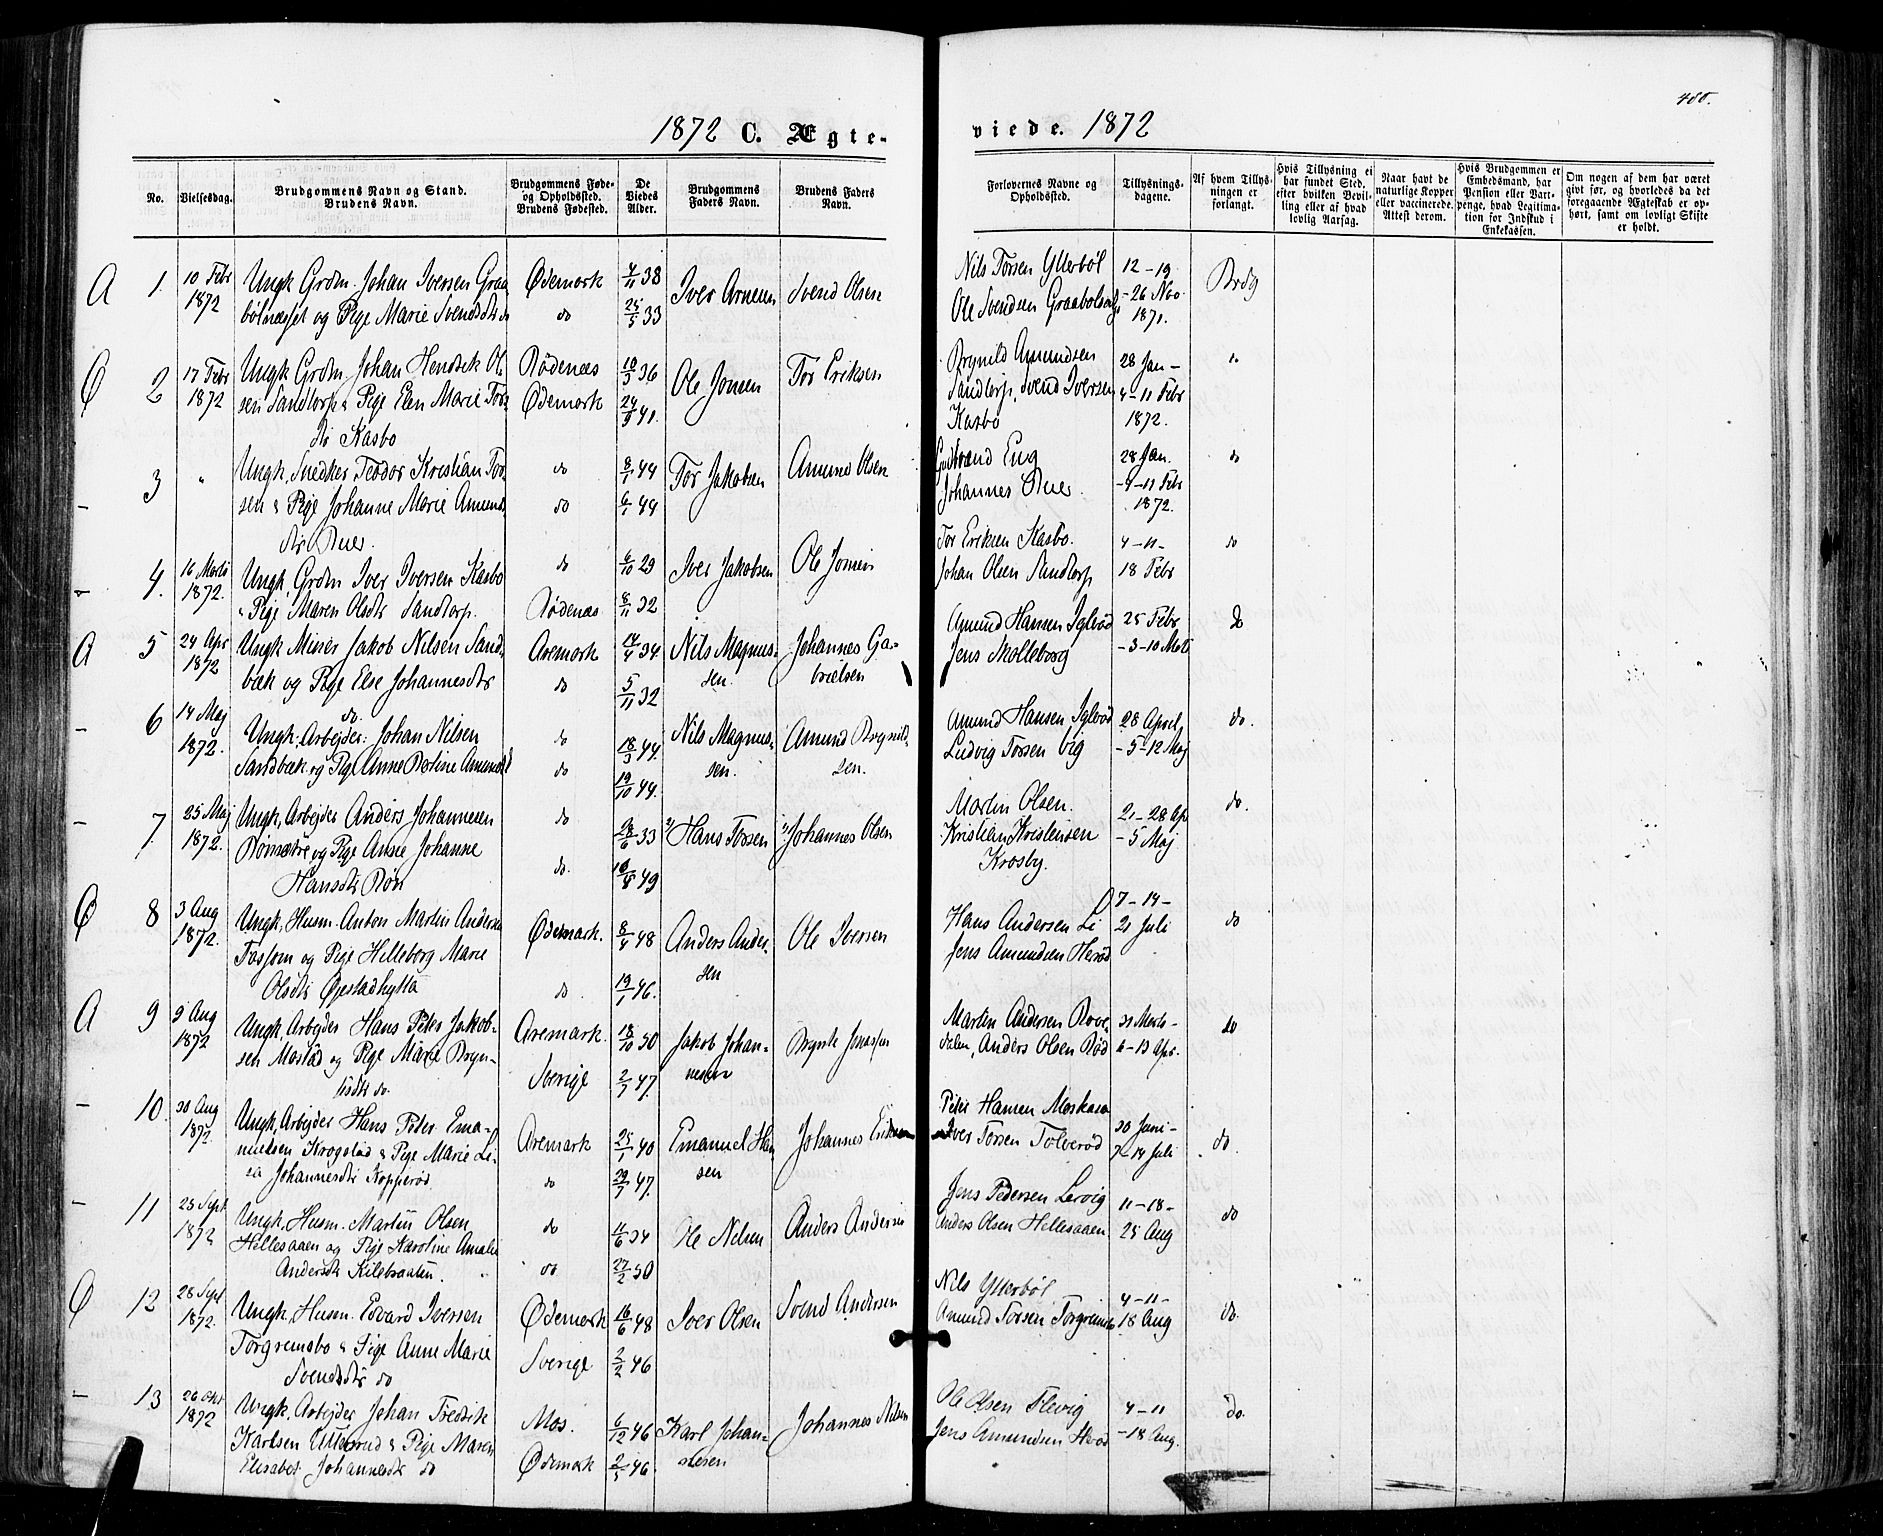 480.
1872 C. Ægte-
viede. 1872
No.
Vielsesdag.
Brudgommens Navn og Stand.
Brudens Navn.
Brudgommens Føde-
og Opholdssted.
Brudens Fødested.
De
Viedes
Alder.
Brudgommens
Faders Navn.
Brudens Faders
Navn.
Forlovernes Navne og
Opholdssted.
Tillysnings-
dagene.
Af hvem Tillys-
ningen er
forlangt.
Hvis Tillysning ei
har fundet Sted,
efter hvilken Bevil-
ling eller af hvad
lovlig Aarsag.
Naar havt de
naturlige Kopper
eller vaccinerede.
Attest derom.
Hvis Brudgommen er
Embedsmand, har
Pension eller Var-
penge, hvad Legitima-
tion for Indskud i
Enkekassen.
Om nogen af dem har været
gift før, og hvorledes da det
foregaaende Ægteskab er op-
hørt, samt om lovligt Skifte
er holdt.
A 1. 10 Febr 1872
Ungk. Grdm. Johan Iversen Graa
bølnæsset og Pige Marie Svendsdtr do
Ødemark
do
4/11 38
25/5 33
Iver Arnesen
Svend Olsen
Nils Torsen Ytterbøl
Ole Svendsen Graabøl
12-19
-26 Nov
1871.
Brdg
Ø 2 17 Febr 1872
Ungk. Grdm. Johan Hendrik Ol
sen Sandtorp & Pige Elen Marie Tors
dtr Kasbo
Rødenæs
Ødemark
10/3 36
24/9 41.
Ole Jonsen
Tor Eriksen
Brynild Amundsen
Sandtorp, Svend Iversen
Kasbo
28 Jan -
4-11 Febr
1872.
"
- 3 "
Ungk. Snedker Teodor Kristian Tor
sen & Pige Johanne Marie Amunds
dtr Buer.
do
do
8/1 44
6/1 44
Tor Jakobsen
Amund Olsen
Gudbrand Eng
Johannes Buer.
28 Jan.
-4-11 Febr
1872.
do
- 4. 16 Marts 1872.
Ungk. Grdm Iver Iversen Kasbo
& Pige Maren Olsdtr Sandtorp.
do
Rødenæs
6/10 29
8/11 32
Iver Jakobsen
Ole Jonsen
Tor Eriksen Kasbo.
Johan Olsen Sandtorp
4-11-
18 Febr
do
A 5 24 Apr 1872
Ungk Minér Jakob Nilsen Sand-
bæk og Pige Else Johannesdtr
do.
Aremark
do
14/4 34
5/11 32
Nils Magnus-
sen.
Johannes Ga-
brielsen
Amund Hansen Iglerød
Jens Skolleborg
25 Febr
-3-10 Mrts
do
- 6 14 Maj 1872.
Ungk. Arbejder Johan Nilsen
Sandbæk og Pige Anne Berline Amundsd
do
do
18/3 44.
19/10 44.
Nils Magnus-
sen.
Amund Brynild-
sen.
Amund Hansen Iglerød
Ludvig Torsen
28 April,
-5-12 Maj
do.
- 7. 25 Maj 1872.
Ungk. Arbejder Anders Johannesen
og Pige Anne Johanne
Hansdtr Bøn
do
do.
28/6 33
10/8 49
" Hans Torsen
" Johannes Olsen
Martin Olsen.
Kristian Kristensen
Krosby.
21-28 Apr
-5 Maj
do.
Ø 8 3 Aug 1872.
Ungk. Husm. Anton Martin Andersen
Fossom og Pige Helleborg Marie
Olsdtr Ørestadhytta
Ødemark.
do.
8/4 48
19/1 46.
Anders Ander-
sen
Ole Iversen
Hans Andersen Li
Jens Amundsen Herød
7-14-
21 Juli
do
A 9 9 Aug 1872
Ungk. Arbejder Hans Peter Jakob-
sen Mostad og Pige Marie Bryn-
do.
Aremark.
Sverige
18/10 50
2/7 47.
Jakob Johan-
nesen
Martin Andersen
dalen, Anders Olsen Rød
31 Marts -
6-13 Apr.
do
- 10. 30 Aug 1872.
Ungk. Arbejder Hans Peter Ema-
nuelsen Krogstad & Pige Marie Li-
sa Johannesdtr Kopperød.
Aremark
do
25/1 40
29/7 47.
Emanuel Han
sen
Johannes Eriksen
Peter Hansen
Iver Torsen Tolverød
30 Juni -
7-14 Juli
do.
- 11 25 Sept. 1872
Ungk. Husm. Martin Olsen
Hillesaaen og Pige Karoline Amalie
Andersdtr Kilebraaten.
do
do
11/6 34
27/2 50
Ole Nilsen
Anders Andersen
Jens Pedersen Lervig
Anders Olsen Hillesaaen
11-18-
25 Aug
do
Ø 12 28 Sept 1872.
Ungk. Husm. Edvard Iversen
Torgrimsbo & Pige Anne Marie
Svendsdtr do
Ødemark
Sverige
16/6 48
2/2 46
Iver Olsen
Svend Andersen
Nils Ytterbøl
Amund Torsen Torgrimsbo
4-11-
18 Aug
do.
- 13 26 Okt 1872
Ungk. Arbejder Johan Fredrik
Karlsen & Pige Maren
Elisabet Johannesdtr do
Mos.
Ødemark
6/12 46
2/5 46
Karl Johan-
nesen
Johannes Nilsen
Ole Olsen Flevig
Jens Amundsen Herød
4-11
-18 Aug.
do.